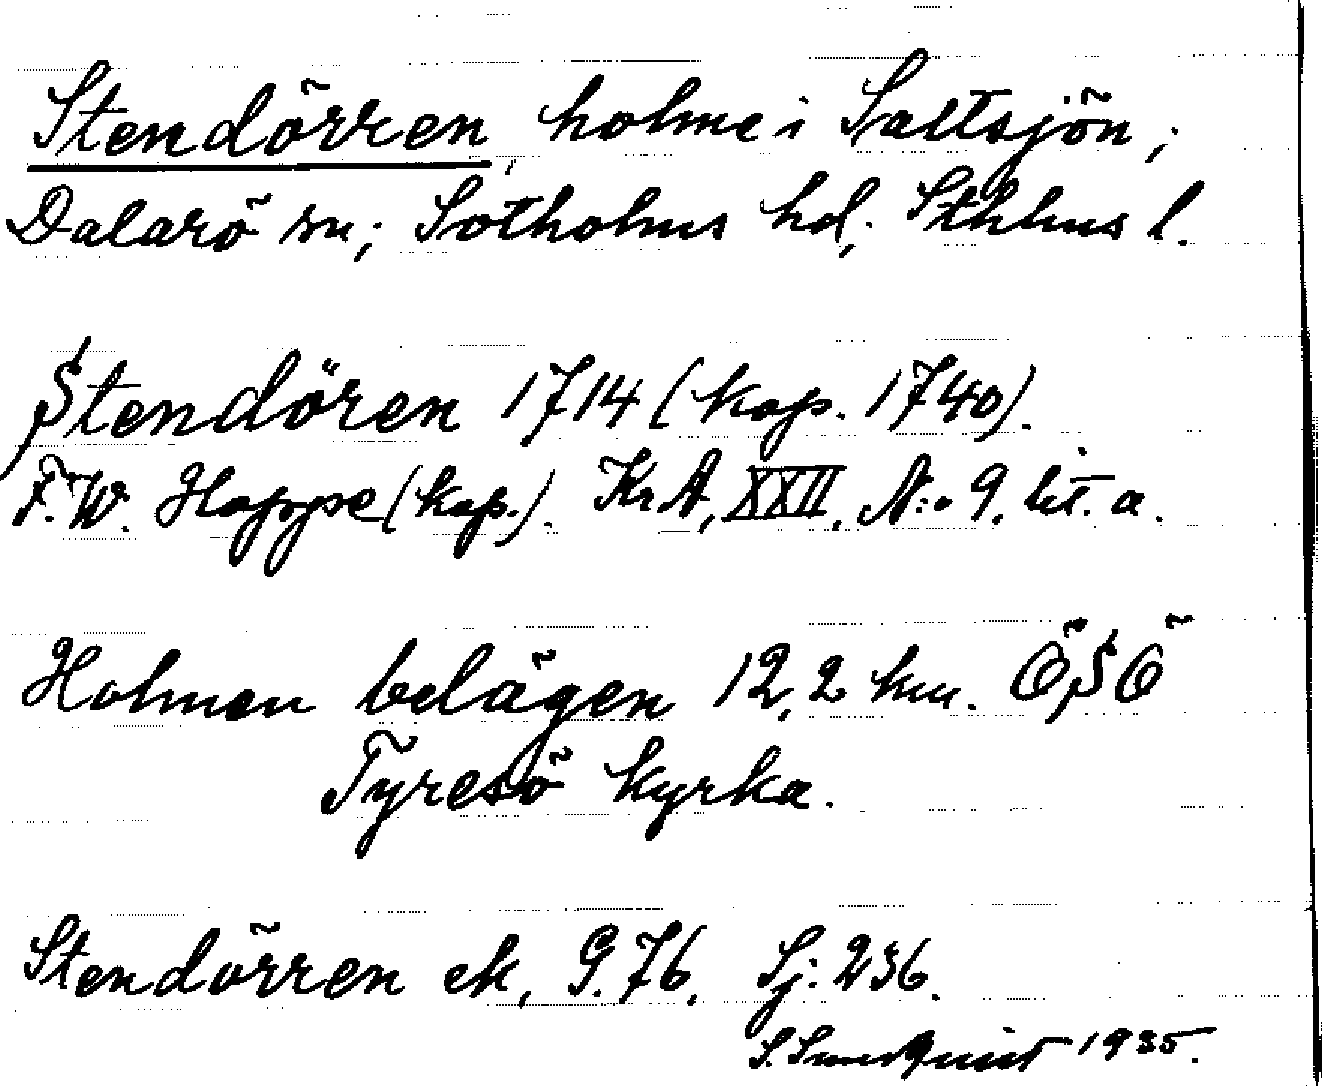 Stendörren, holme i Saltsjön;
Dalarö sn; Sotholms hd; Sthlms l.
Stendören 1714 (kop. 1740).
F.W. Hoppe (kop.). KrA, XXII, N:o 9. lit. a.
Holmen belägen 12,2 km. ÖSÖ
Tyresö kyrka.
Stendörren ek, G. 76. Sj: 236.
S. 1935.